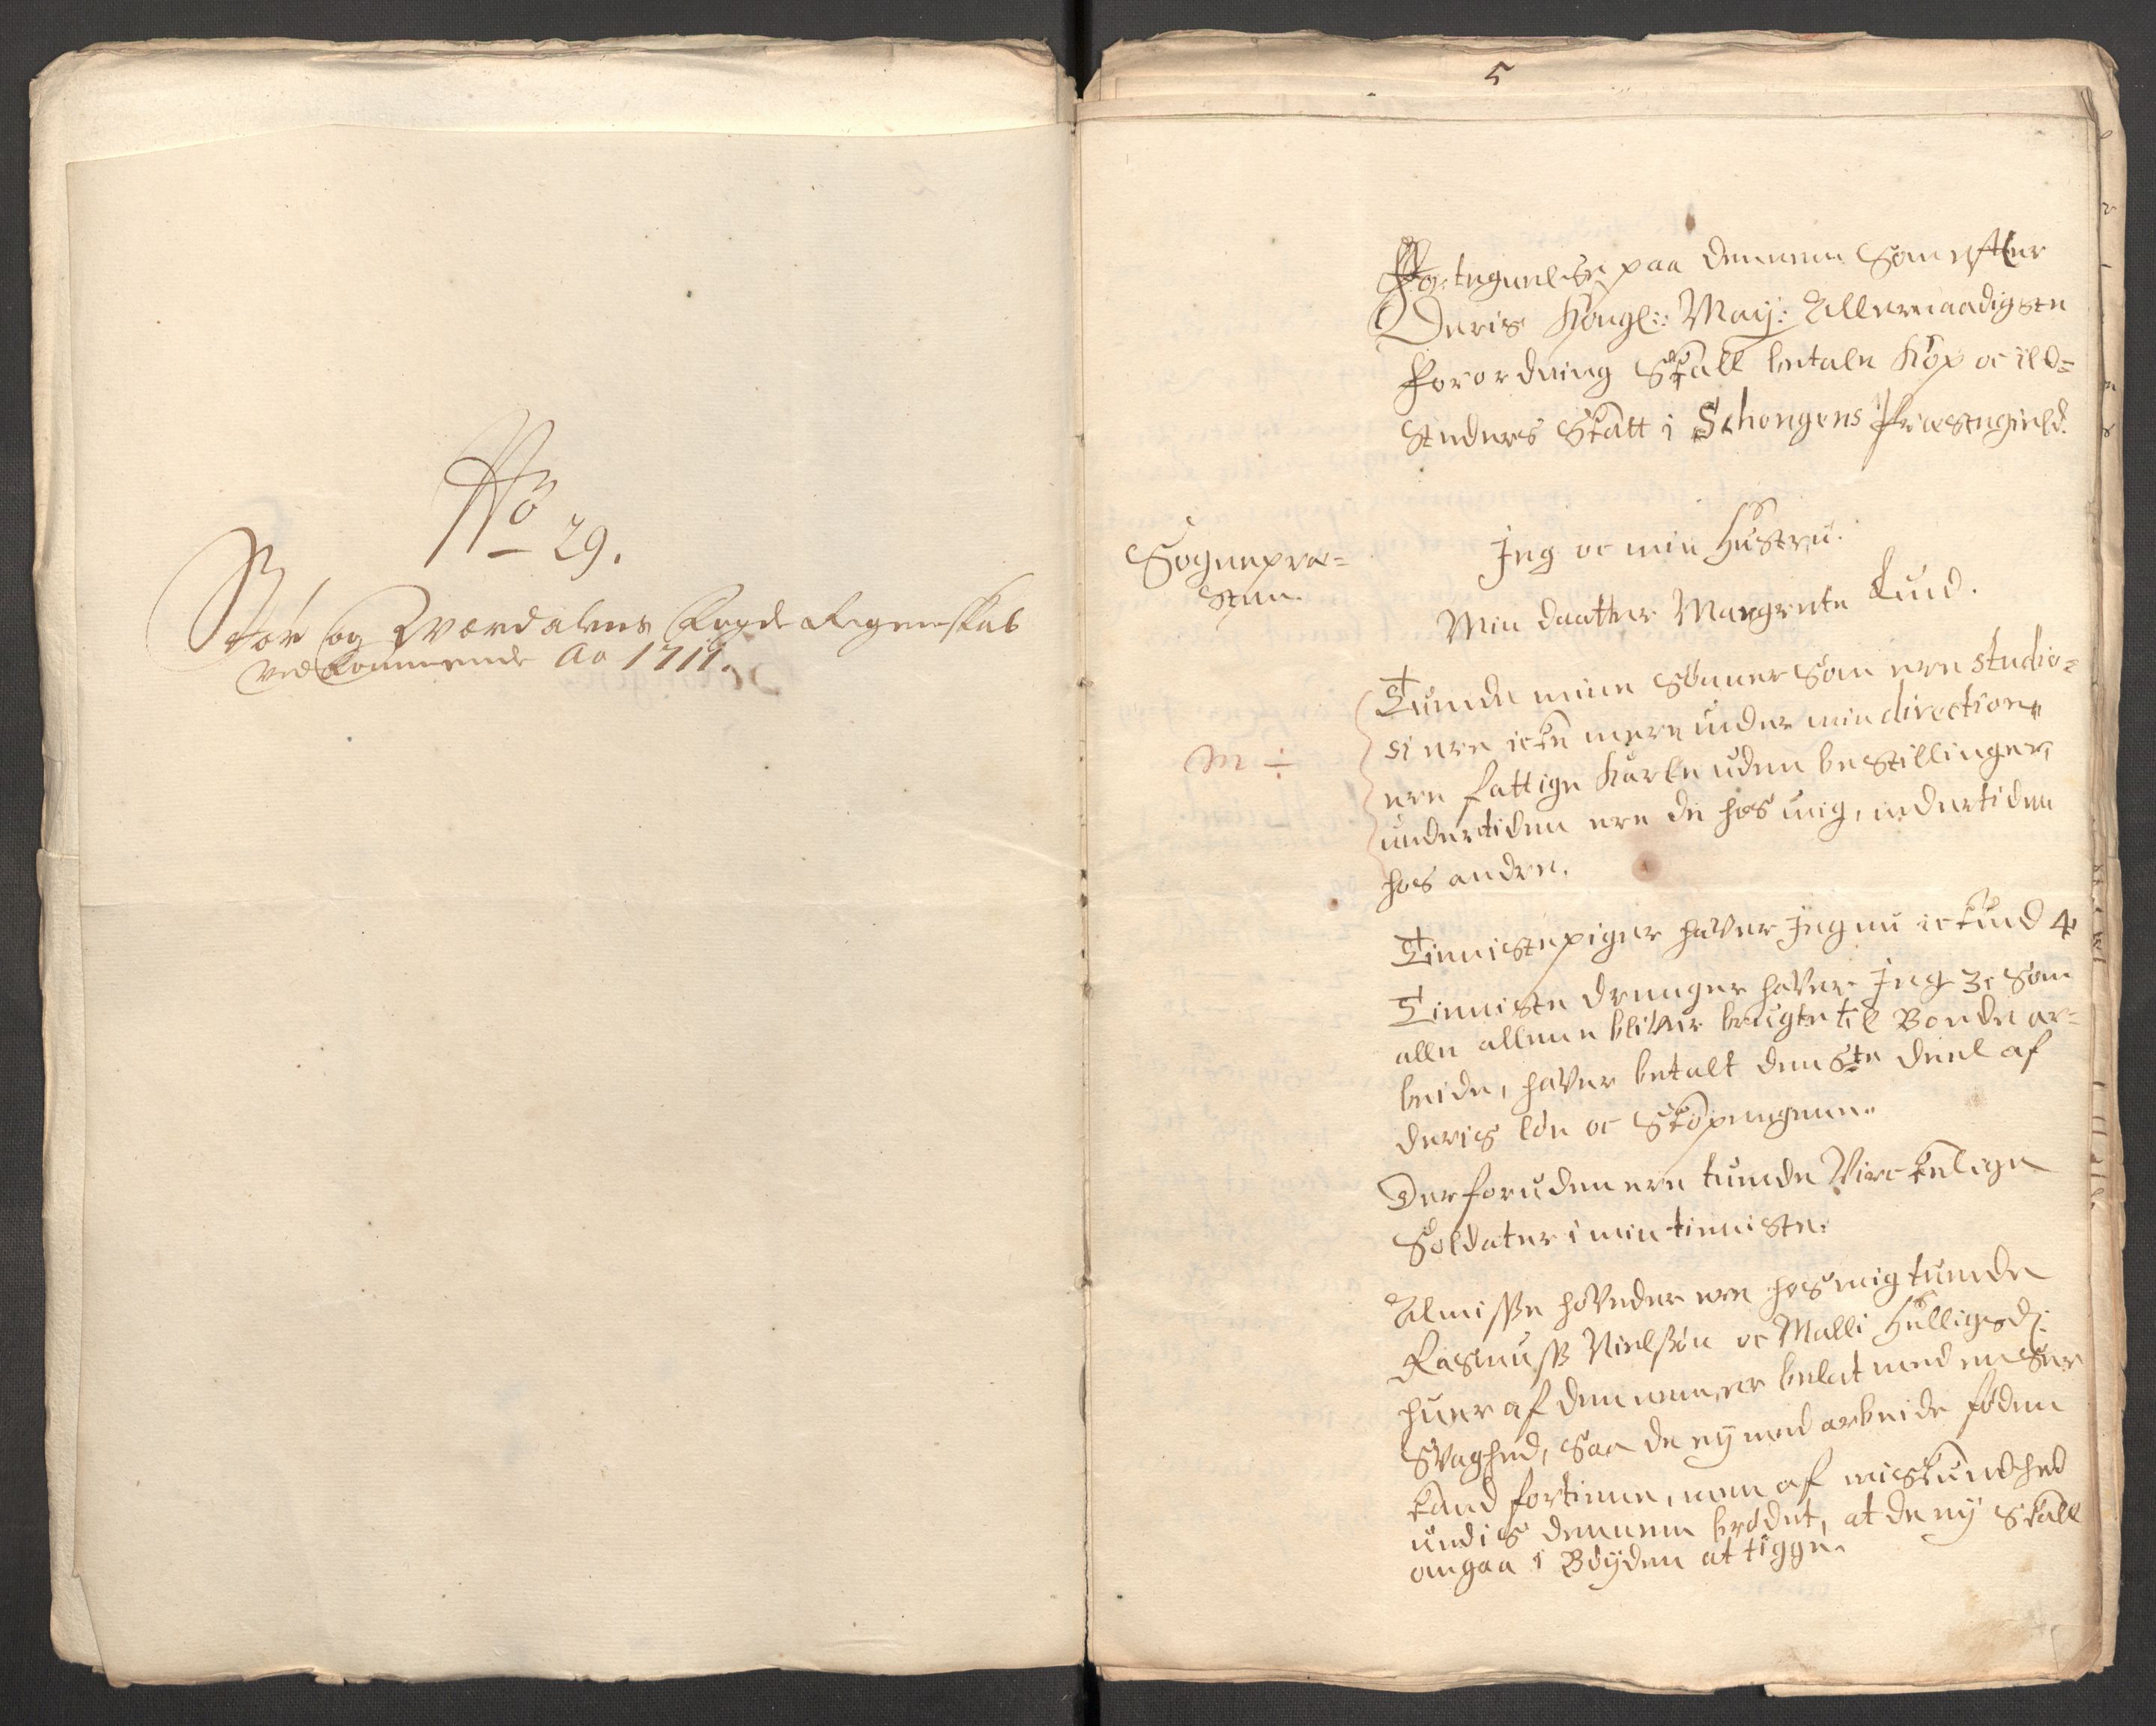 No 29.
Stør og Wærdalens Fogde Regenskab
vedkommende Ao 1711.
5
Fortegnelse paa dennem som efter
Deris Kongl:: Maij: Allernaadigste
forordning skall betale Kop oc ild=
steders skatt i Schongens Præstegield.
Sognepræ=
sten.
Jeg oc min Hustru.
Min daatter Margrete Lund.
Tuende mine sönner som ere studio=
si ere icke mere under min direction,
ere fattige Karle uden bestillinger,
undertiden ere de hos mig, undertiden
hos andre.
M ÷
Tienistepiger haver jeg nu ickund 4
Tieniste drenger haver Jeg 3, som
alle allene bliver brugte til Bonde ar=
beide, haver betalt den 6te deel af
deris lön oc Skopengene.
Derforuden ere tuende Virckelige
Soldater i min tieniste.
Almisse hoveder ere hos mig tuende
Rasmuss Nielsön oc Malli Hulligsd:
huer af dennem, er belat med en stor
svaghed, saa de ey med arbeide föden
kand fortiene, men af miskundhed
undis dennem brödet, at de ey skall
omgaa i Böyden at tigge.